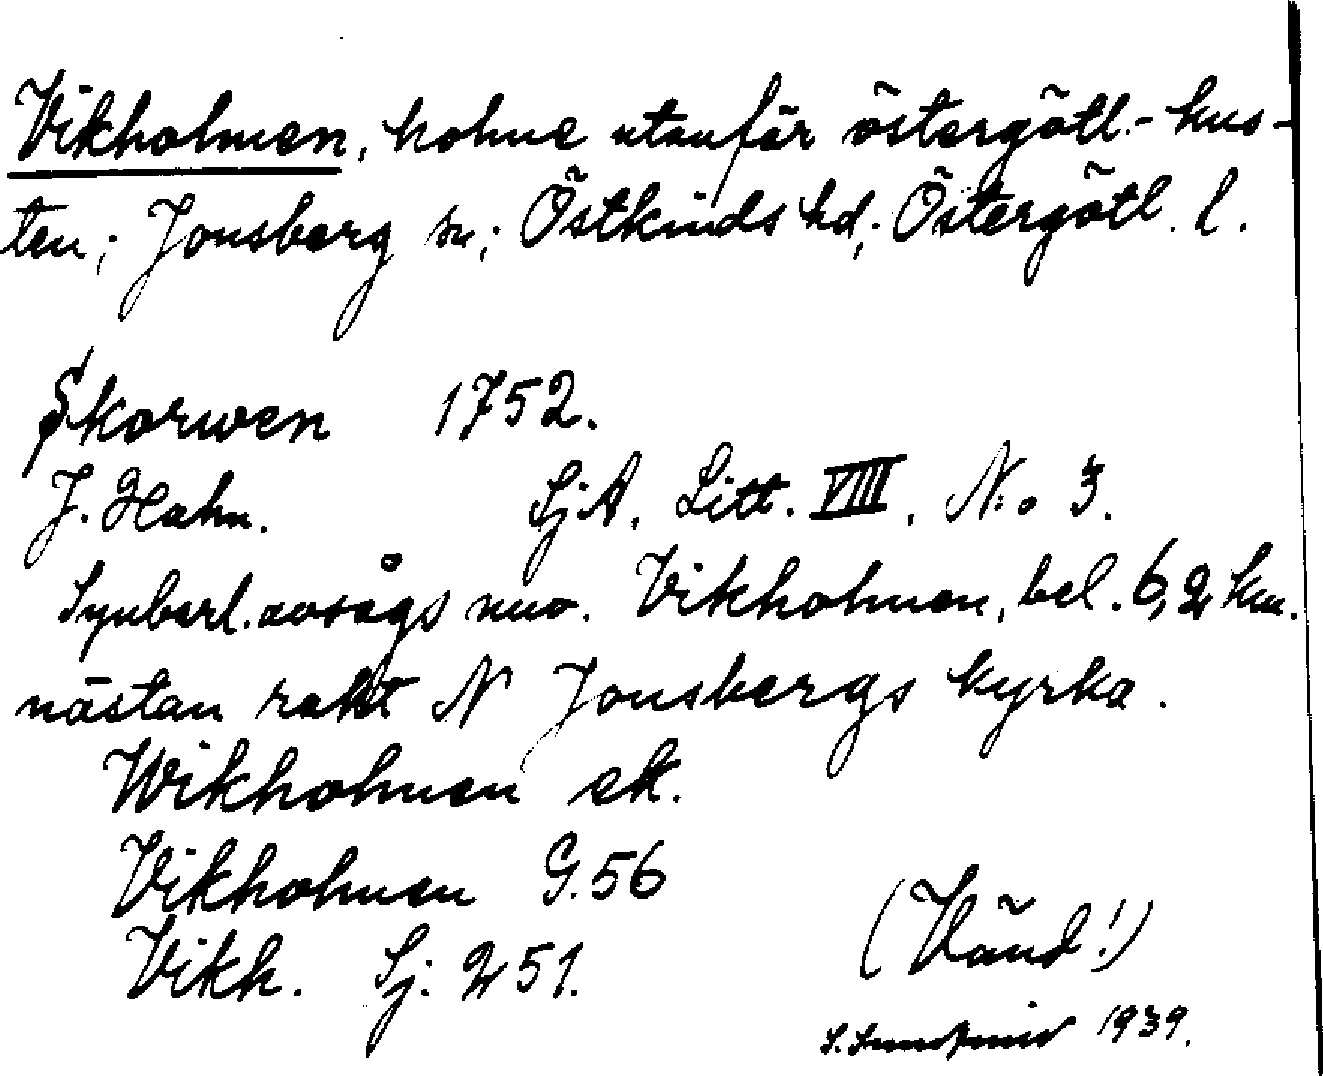 Vikholmen, holme utanför östergötl.-kus-
ten; Jonsberg sn; Östkinds hd; Östergötl. l.
Skorwen 1752.
J. Hahn. SjA, Litt. VIII, No 3.
Synbarl. avsågs nuv. Vikholmen, bel. 6,2 km.
nästan rakt N Jonsbergs kyrka.
Wikholmen ek.
Vikholmen G. 56
Vikh. Sj. 251.
(Vänd!)
1939.